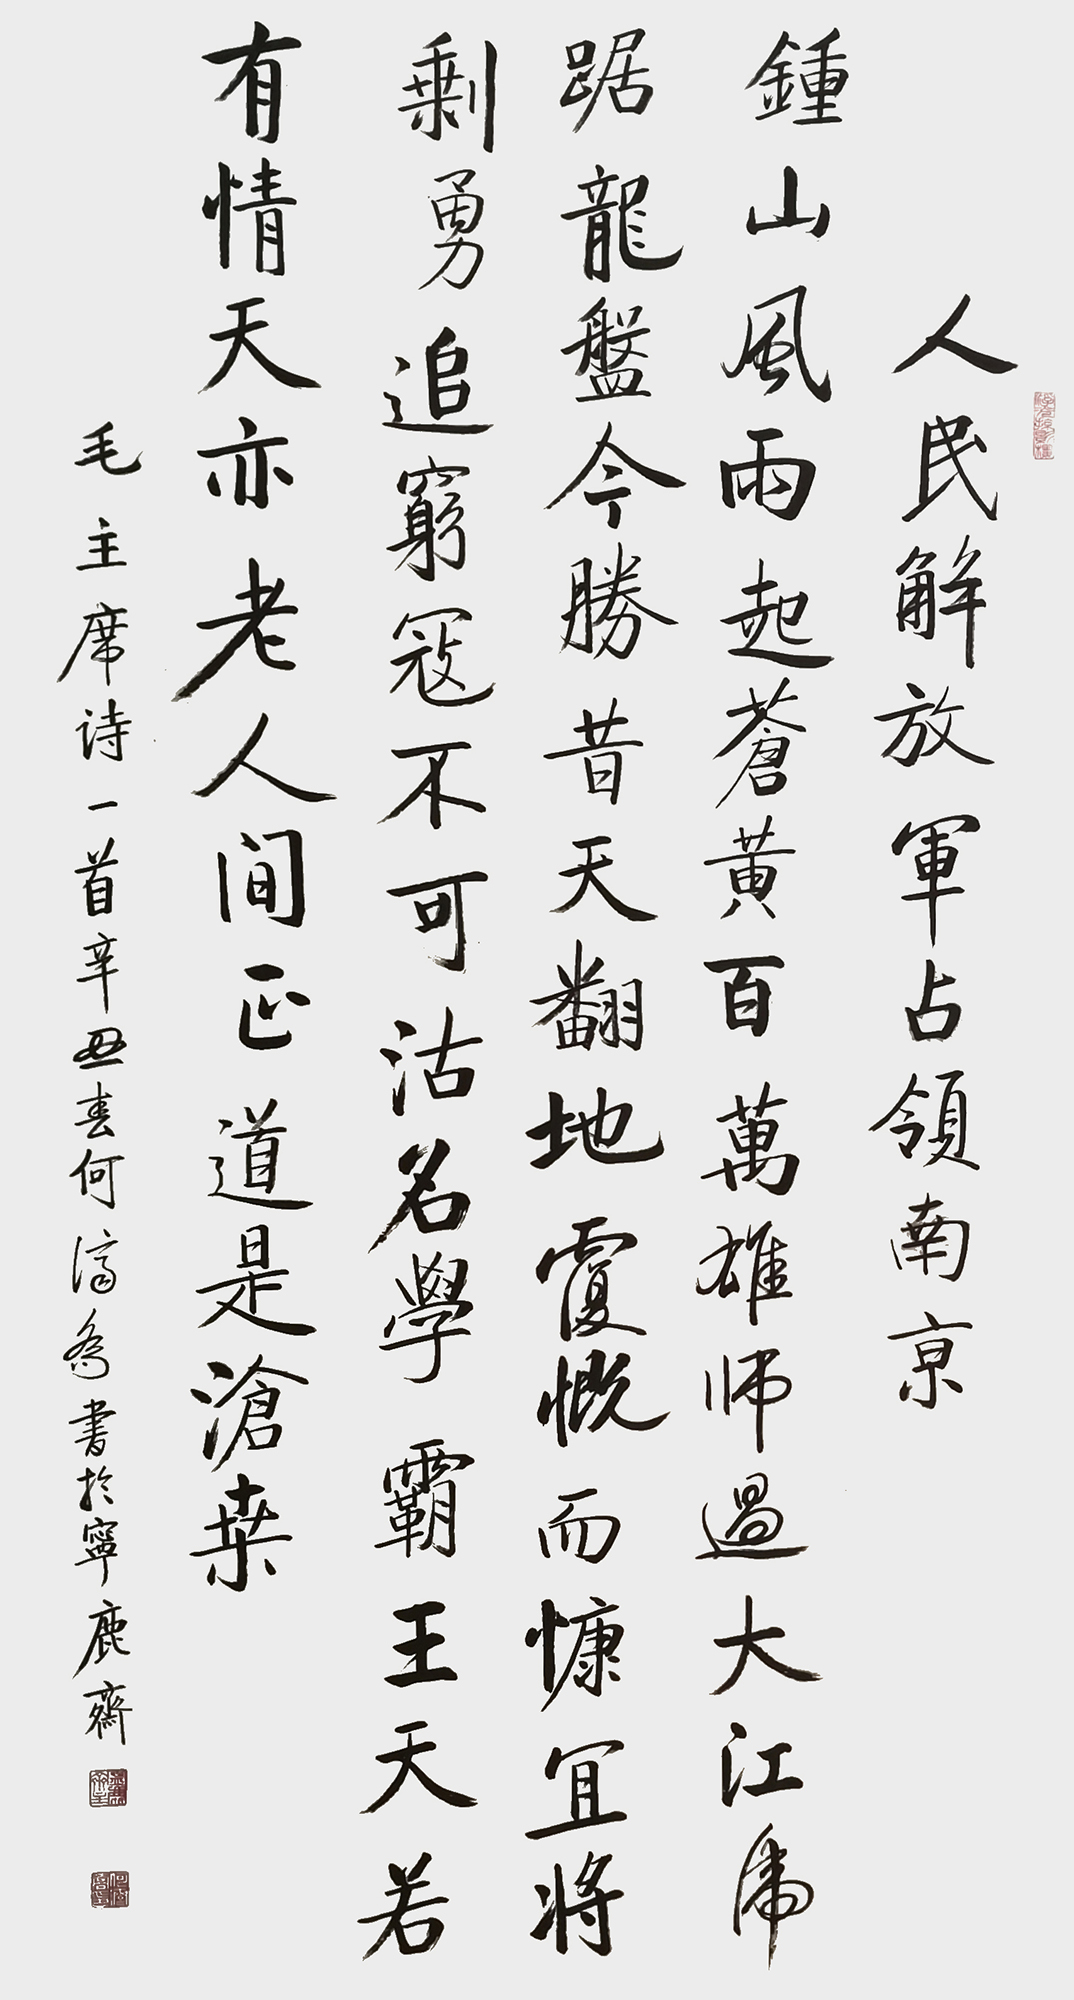 人民解放軍占領南京
鍾山風雨起蒼黃百萬雄师過大江虎
踞龍盤今勝昔天翻地覆慨而慷宜將
剩勇追窮寇不可沽名學霸王天若
有情天亦老人间正道是滄桑
毛主席诗一首辛丑春何書於寧鹿齋